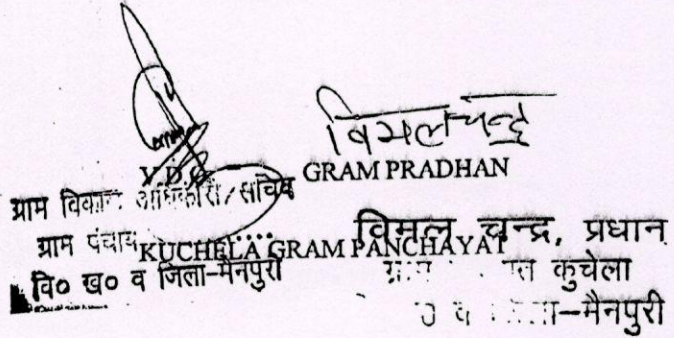 विमलचन्द्र
V.D.O. GRAM PRADHAN
ग्राम विकास अधिकारी/सचिव
ग्राम पंचाय
KUCHELA GRAM PANCHAYAT
वि० ख० व जिला-मैनपुरी
विमल चन्द्र, प्रधान
त कुचेला
व
-मैनपुरी